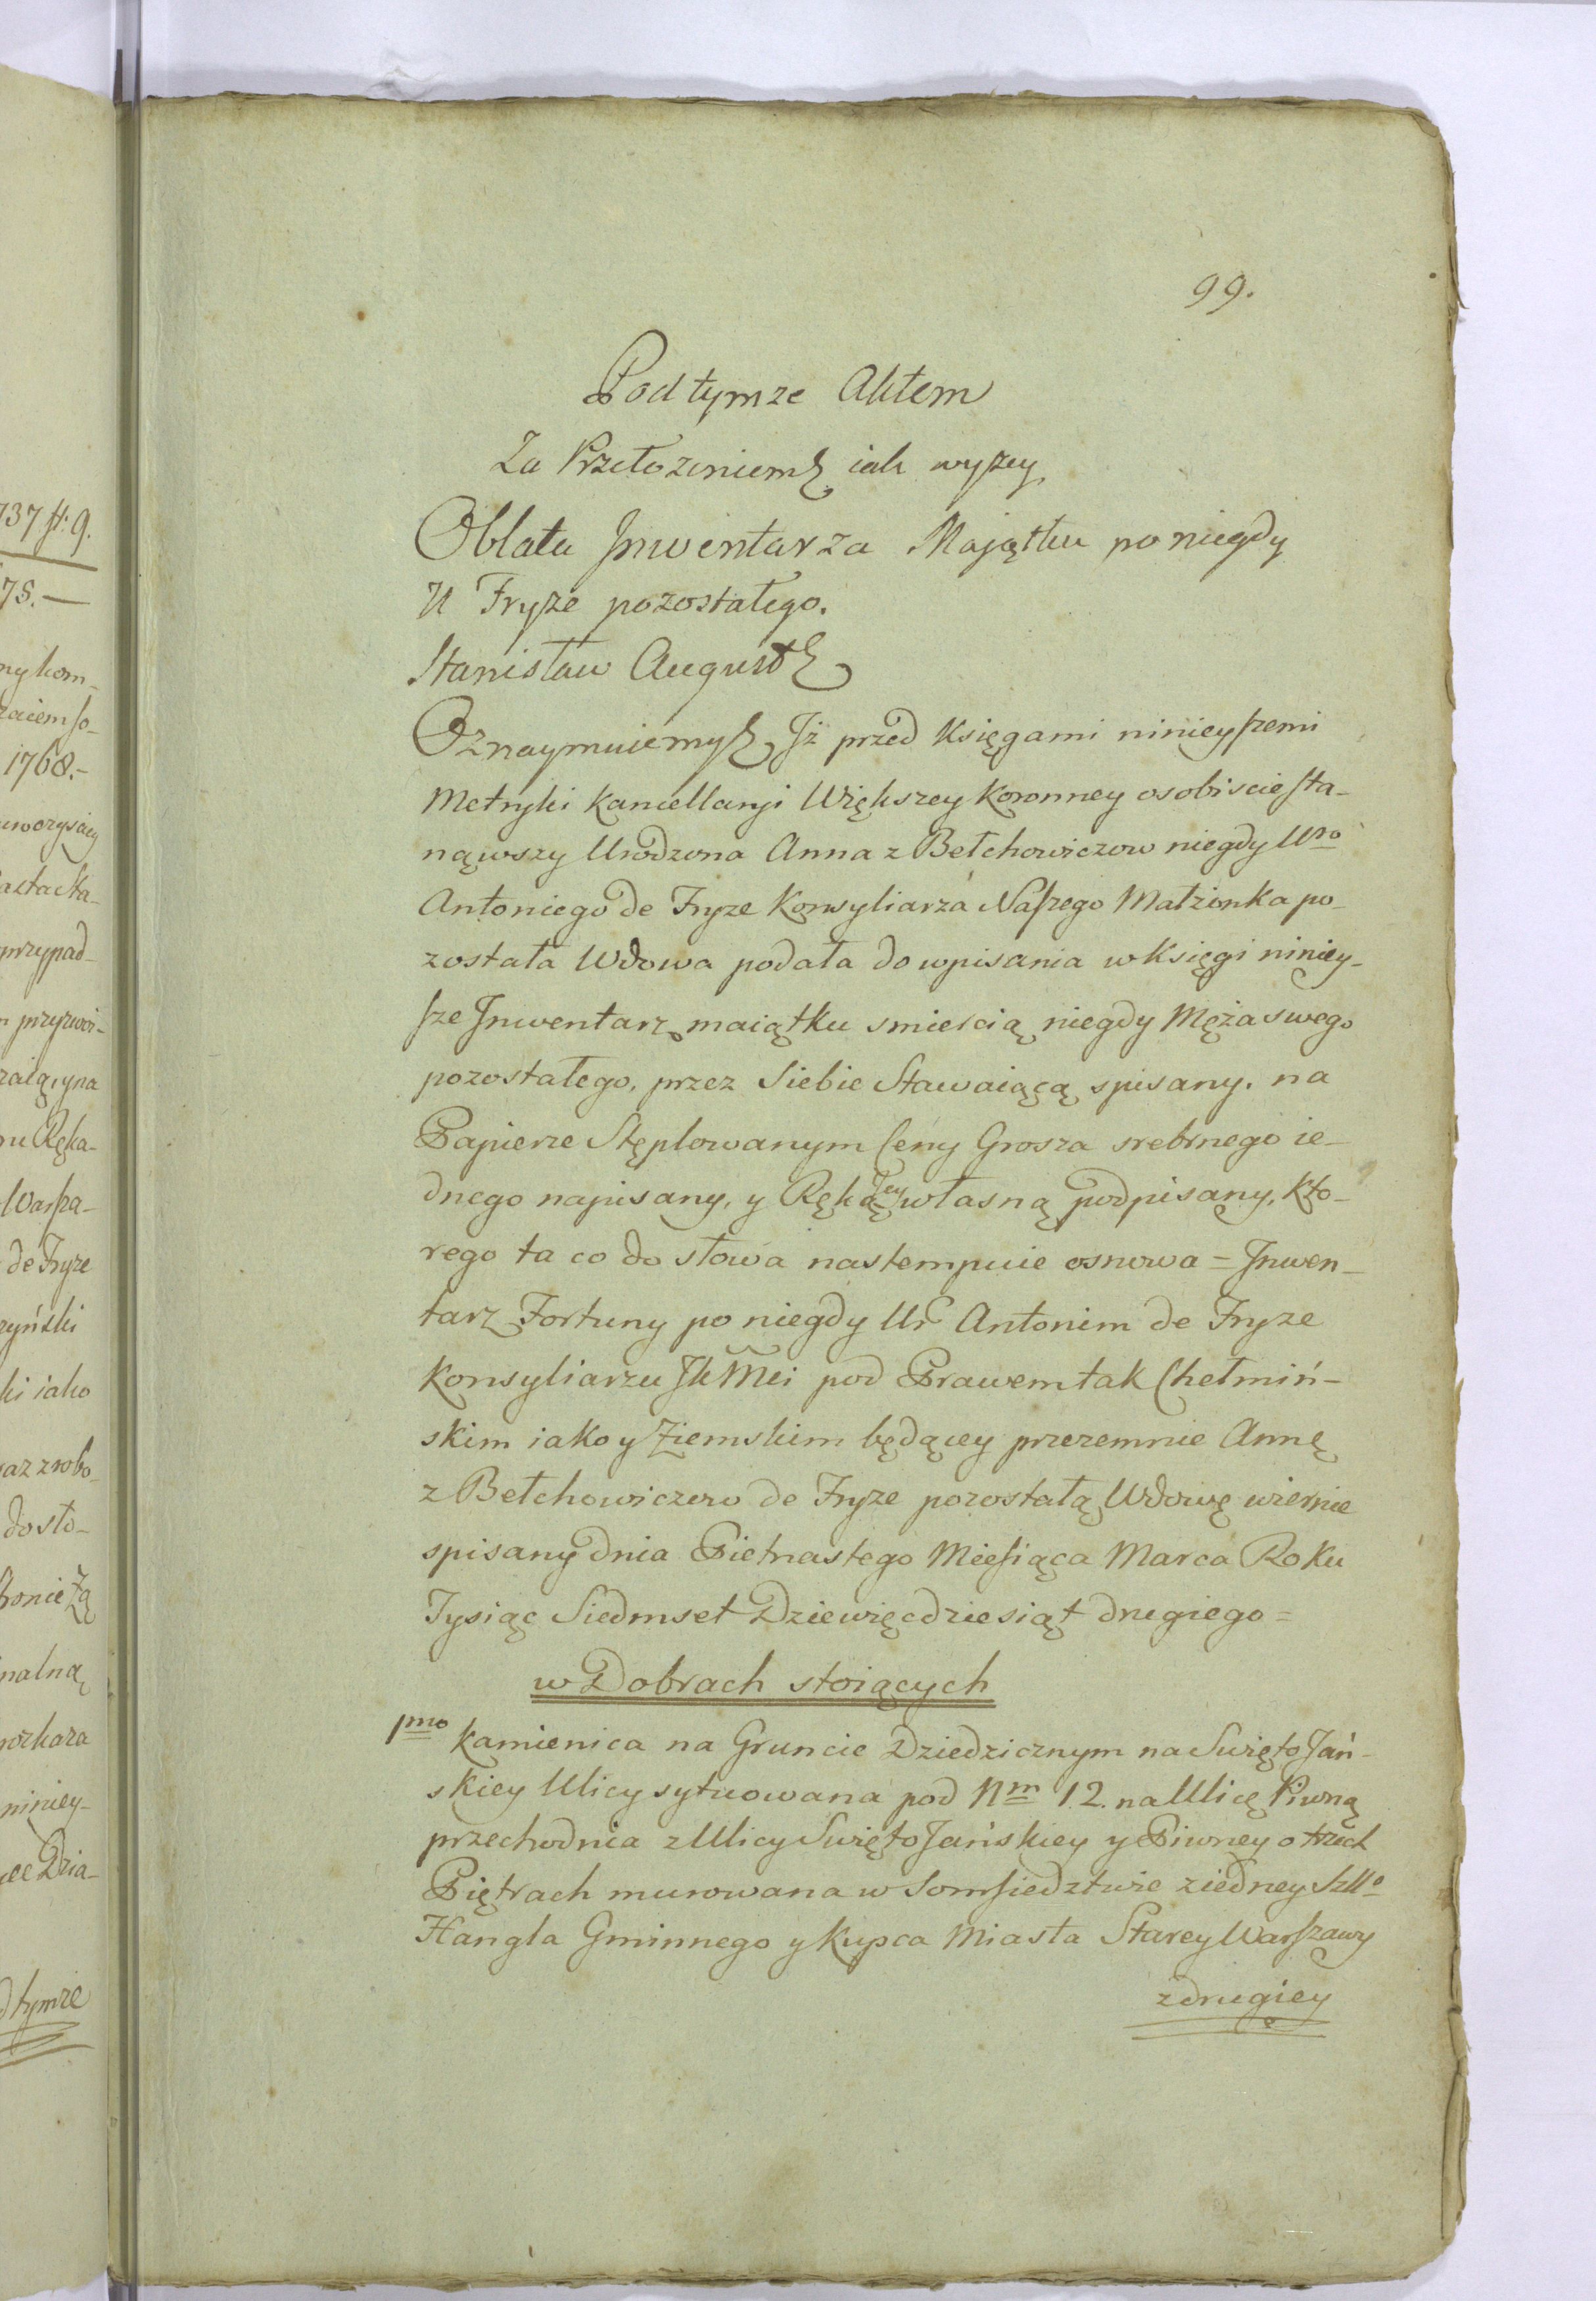 737 f: 9.
78.—
ny kom-
zaiem so-
1768.-
przypad-
zaią, yna
Warſza-
de Fryze
zyński
ki iako
dosło-
nalną
niniey-
Dzia-
tymze
99.
Pod tymze Aktem
Za Przełozeniem iak wyſzey
Oblata Inwentarza Majątku po niegdy
U Fryze pozostałego.
Stanisław August
Oznaymuiemy Iż przed Księgami ninieyſzemi
Metryki Kancellaryi Większey Koronney osobiscie sta-
nąwszy Urodzona Anna z Bełchowiczow niegdy Uro
Antoniego de Fryze Konsyliarza Naſzego Małżonka po-
zostala Wdowa podała do wpisania w Księgi niniey-
ſze Inwentarz maiątku smiercią niegdy Męża swego
pozostałego, przez Siebie Stawaiącą spisany. na
Papierze Stęplowanym Ceny Grosza srebrnego ie-
dnego napisany, y Ręką Jey własną podpisany, Kto-
rego ta co do słowa nastempuie osnowa = Inwen-
tarz Fortuny po niegdy Ur Antonim de Fryze
Konsyliarzu JKMci pod Prawem tak Chełmiń-
skim iako y Ziemskim będącey przezemnie Annę
z Bełchowiczow de Fryze pozostałą Wdowę wiernie
spisany dnia Pietnastego Mieſiąca Marca Roku
Tysiąc Siedmset Dziewięcdziesiąt drugiego =
w Dobrach stoiących
1mo Kamienica na Gruncie Dziedzicznym na Swięto Jań-
skiey Ulicy sytuowana pod Nm 12. na Ulicę Piwną
przechodnia z Ulicy Swięto Jańskiey y Piwney o trzech
Piętrach murowana w Somſiedztwie ziedney Szllo
Hangla Gminnego y Kupca Miasta Starey Warſzawy
zdrugiey